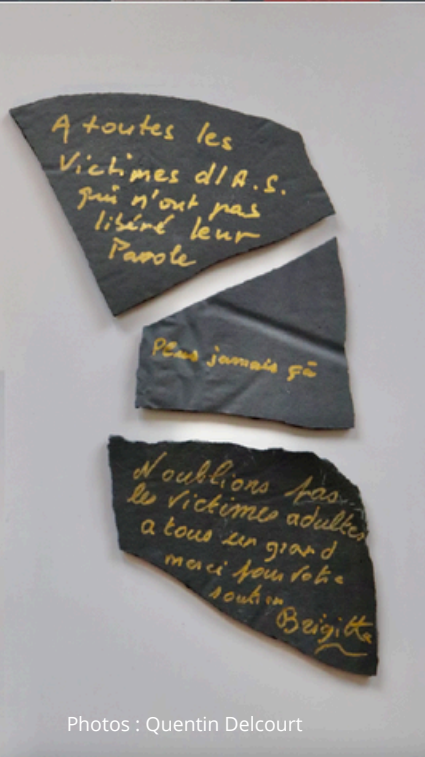 A toutes les
Victimes d'A.S.
qui n'ont pas
libéré leur
Parole
Plus jamais ça
N oublions pas
les victimes adultes
a tous un grand
merci pour votre
soutien
Brigitte
Photos : Quentin Delcourt